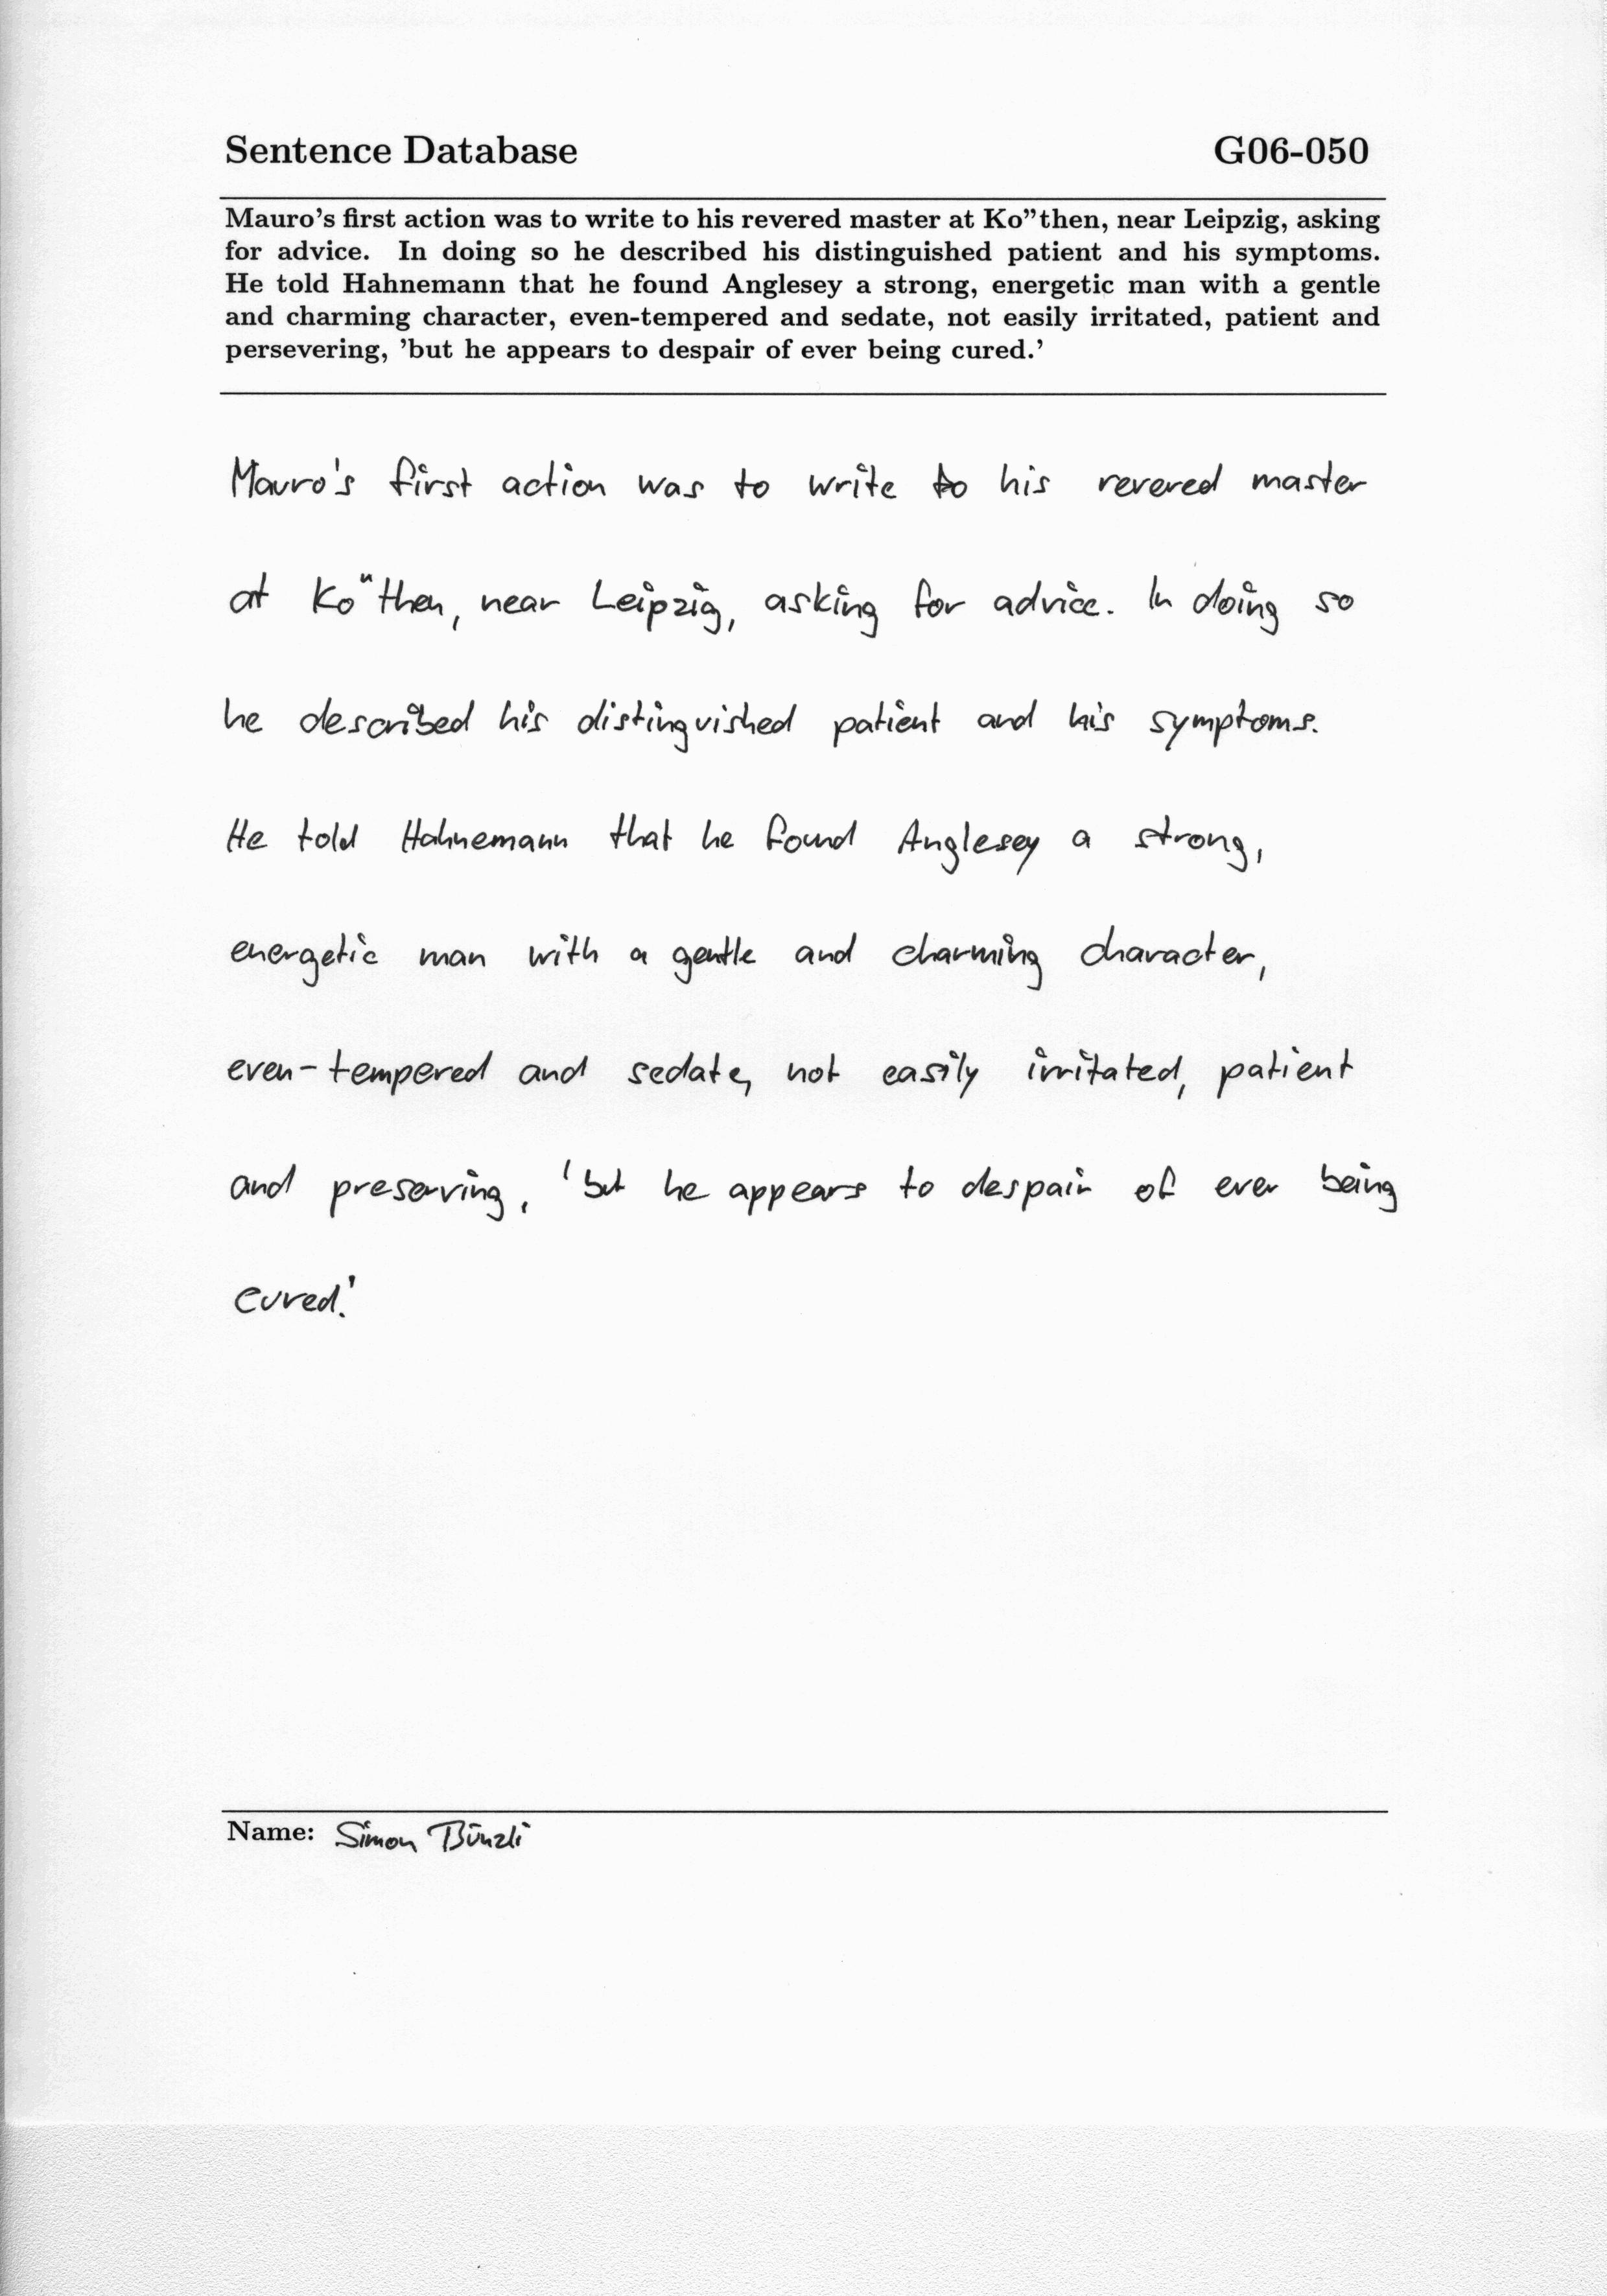 Sentence Database G06-050
Mauro's first action was to write to his revered master at Ko"then, near Leipzig, asking
for advice. In doing so he described his distinguished patient and his symptoms.
He told Hahnemann that he found Anglesey a strong, energetic man with a gentle
and charming character, even-tempered and sedate, not easily irritated, patient and
persevering, 'but he appears to despair of ever being cured.'
Mauro's first action was to write to his revered master
at Ko"then, near Leipzig, asking for advice. In doing so
he described his distinguished patient and his symptoms.
He told Hahnemann that he found Anglesey a strong,
energetic man with a gentle and charming character,
even-tempered and sedate, not easily irritated, patient
and preserving, 'but he appears to despair of ever being
cured.'
Name: Simon Bünzli